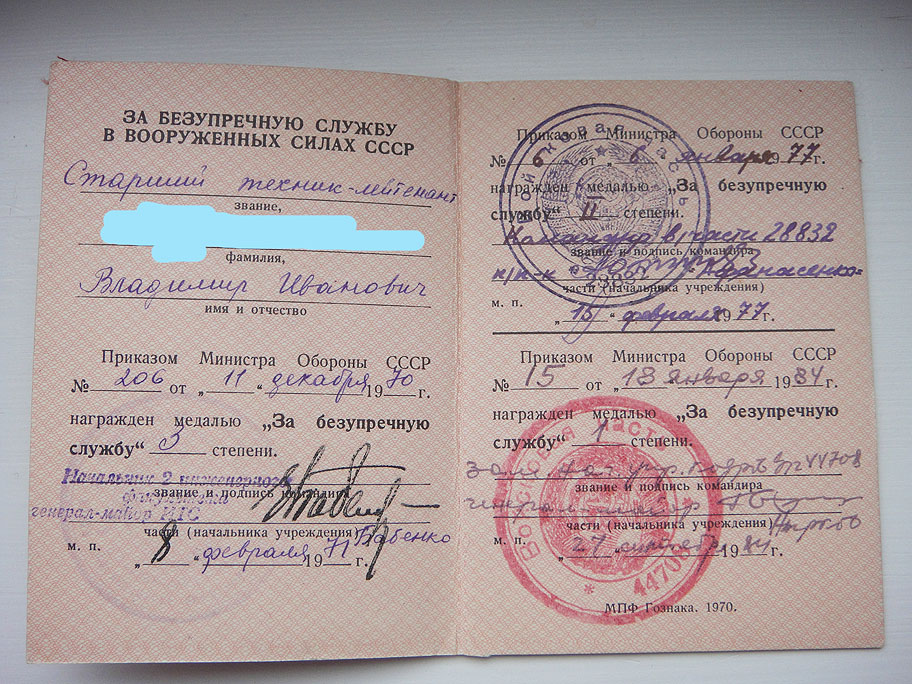 ЗА БЕЗУПРЕЧНУЮ СЛУЖБУ
В ВООРУЖЕННЫХ СИЛАХ СССР
Старший техник-лейтенант
звание,
фамилия,
Владимир Иванович
имя и отчество
Приказом Министра Обороны СССР
№ 206 от „11“ декабря 1970 г.
награжден медалью „За безупречную
службу“ 3 степени.
Начальник 2 инженерного
звание и подпись командира
генерал-майор ИТС
части (начальника учреждения) Бабенко
м. п. „8“ февраля 1971 г.
Приказом Министра Обороны СССР
№ от „6“ января 1977 г.
награжден медалью „За безупречную
службу“ II степени.
Командир в части 28832
звание и подпись командира
п/п-к Афанасенко
части (начальника учреждения)
м. п.
„15“ февраля 1977 г.
Приказом Министра Обороны СССР
№ 15 от „13 января 1984 г.
награжден медалью „За безупречную
службу“ 1 степени.
44708
звание и подпись командира
генерал-майор
части (начальника учреждения)
м. п. „27 1984 г.
ВОЙСКОВАЯ ЧАСТЬ
* 44708 *
МПФ Гознака. 1970.